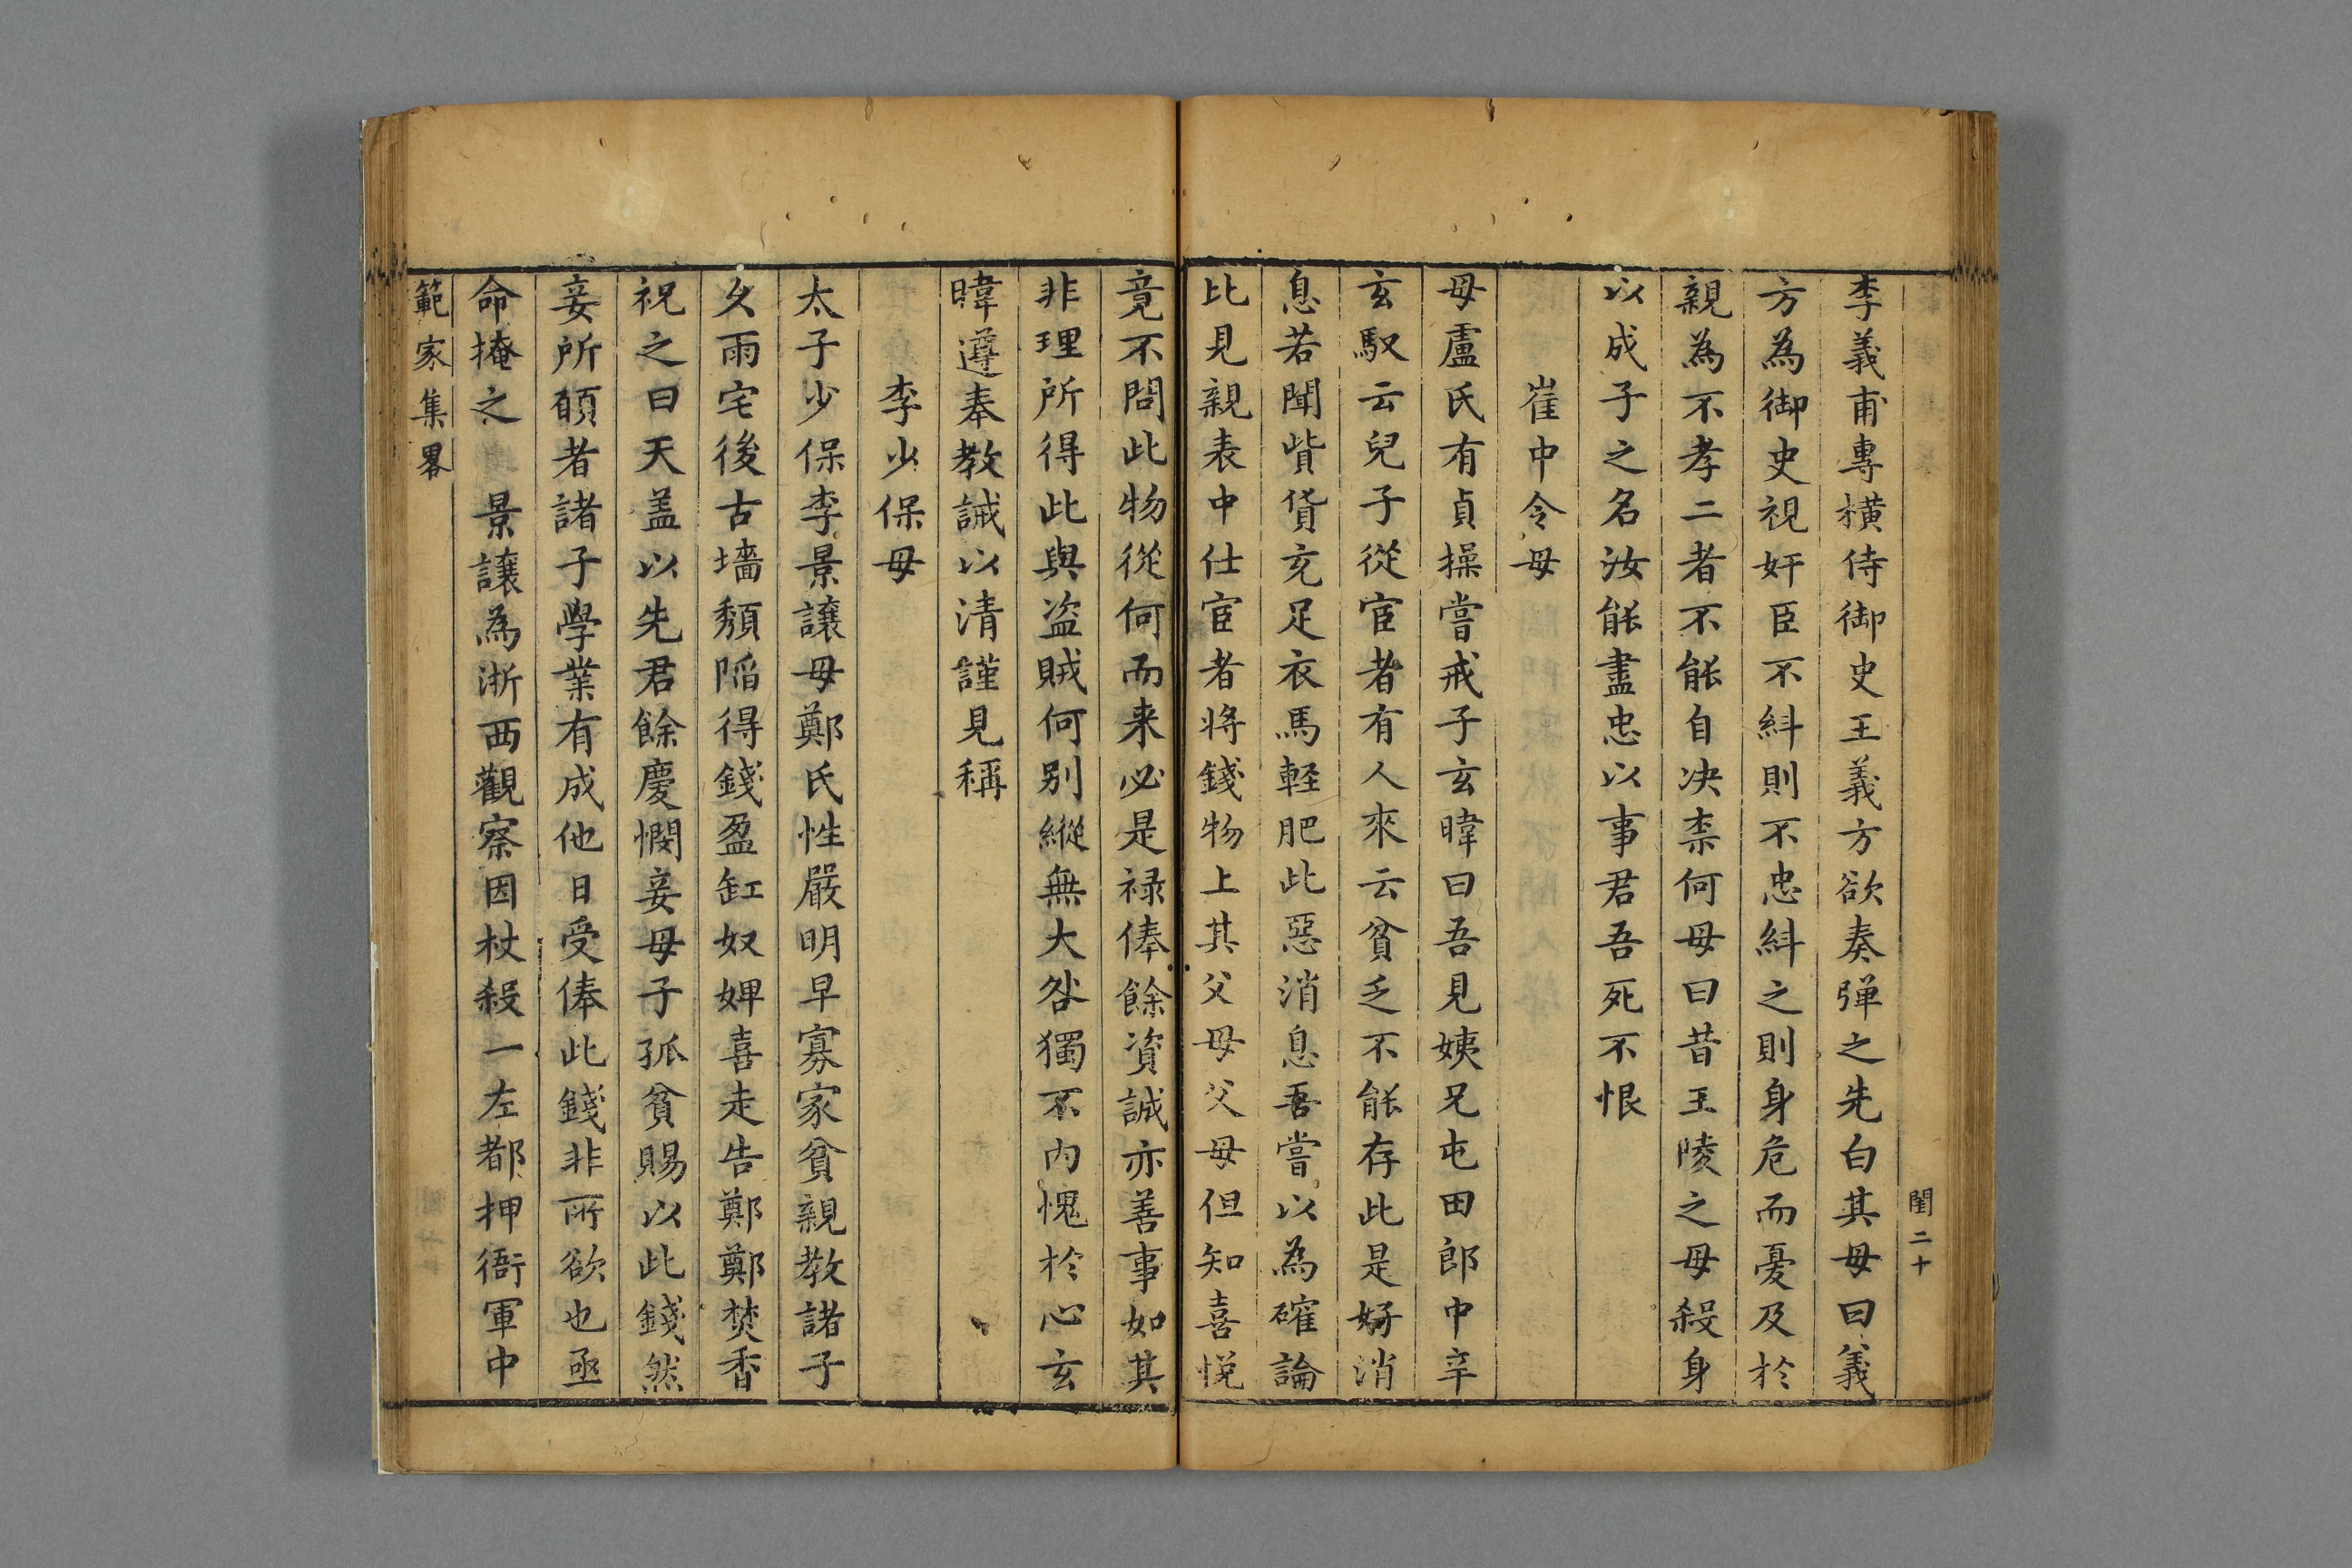 閨二十
李義甫專横侍御史王義方欲奏彈之先白其母曰義
方為御史視奸臣不糾則不忠糾之則身危而憂及於
親為不孝二者不能自决柰何母曰昔王陵之母殺身
以成子之名汝能盡忠以事君吾死不恨
崔中令母
母盧氏有貞操嘗戒子玄暐曰吾見姨兄屯田郎中辛
玄馭云兒子從宦者有人來云貧乏不能存此是好消
息若聞貲貨充足衣馬軽肥此惡消息吾嘗以為確論
比見親表中仕宦者将錢物上其父母父母但知喜悅
竟不問此物從何而来必是禄俸餘資誠亦善事如其
非理所得此與盗賊何别縱無大咎獨不内愧於心玄
暐遵奉教誡以清謹見稱
李少保母
太子少保李景讓母鄭氏性嚴明早寡家貧親教諸子
久雨宅後古墻頽陷得錢盈缸奴婢喜走告鄭鄭焚香
祝之曰天盖以先君餘慶憫妾母子孤貧賜以此錢然
妾所願者諸子學業有成他日受俸此錢非所欲也亟
命掩之　景讓為浙西觀察因杖殺一左都押衙軍中
範家集畧